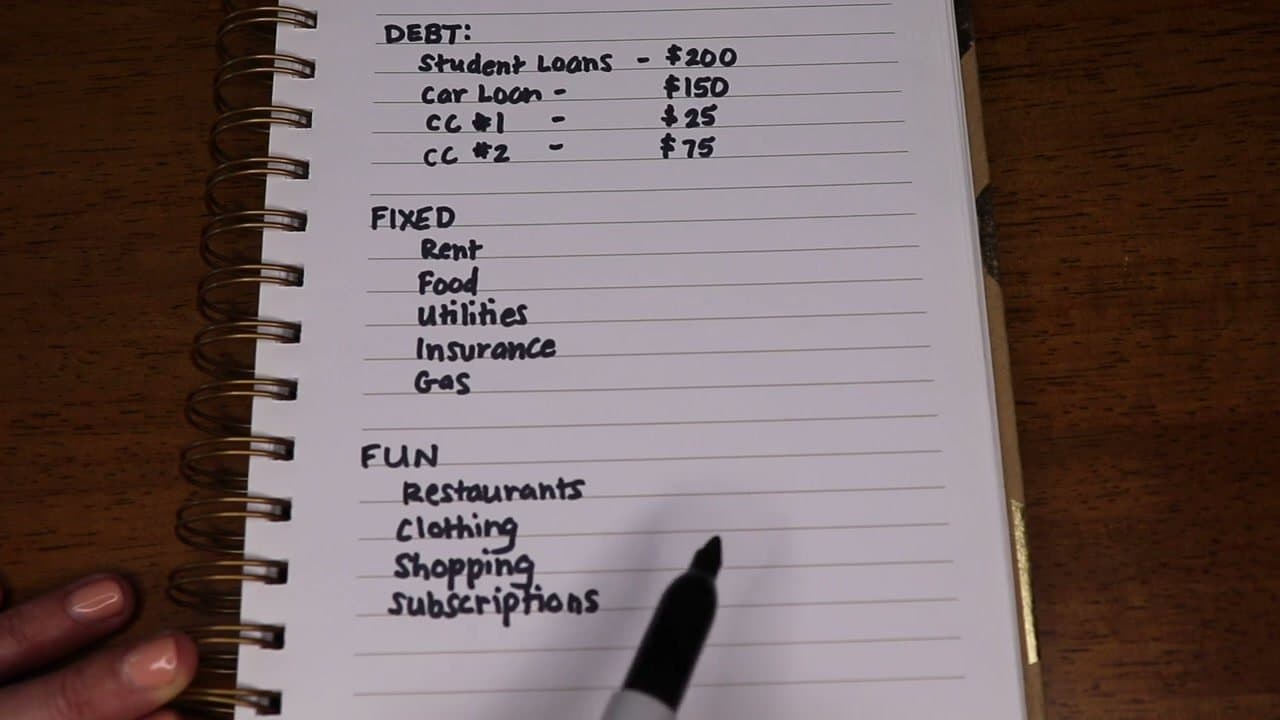 DEBT:
Student Loans - $200
Car Loan - $150
CC #1 - $25
CC #2 - $75
FIXED
Rent
Food
Utilities
Insurance
Gas
FUN
Restaurants
Clothing
Shopping
Subscriptions